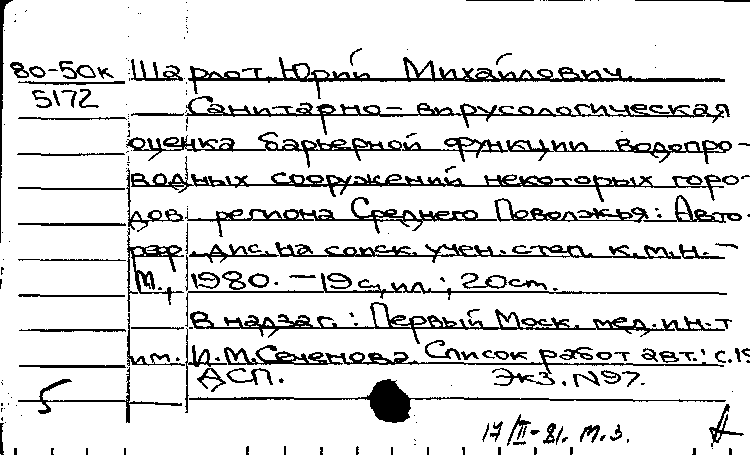 80-50к Шарлот, Юрий Михайлович.
5172
Санитарно-вирусологическая
оценка барьерной функции водопро-
водных сооружений некоторых горо-
дов региона Среднего Поволжья: Авто-
реф. дис. на соиск. учен. степ. к.м.н. -
М., 1980. - 19 с., ил.; 20 см.
В надзаг.: Первый Моск. мед. ин-т
им. И.М. Сеченова. Список работ авт.: с. 19
ДСП. Экз. N97.
5
17/II-81. м.з.